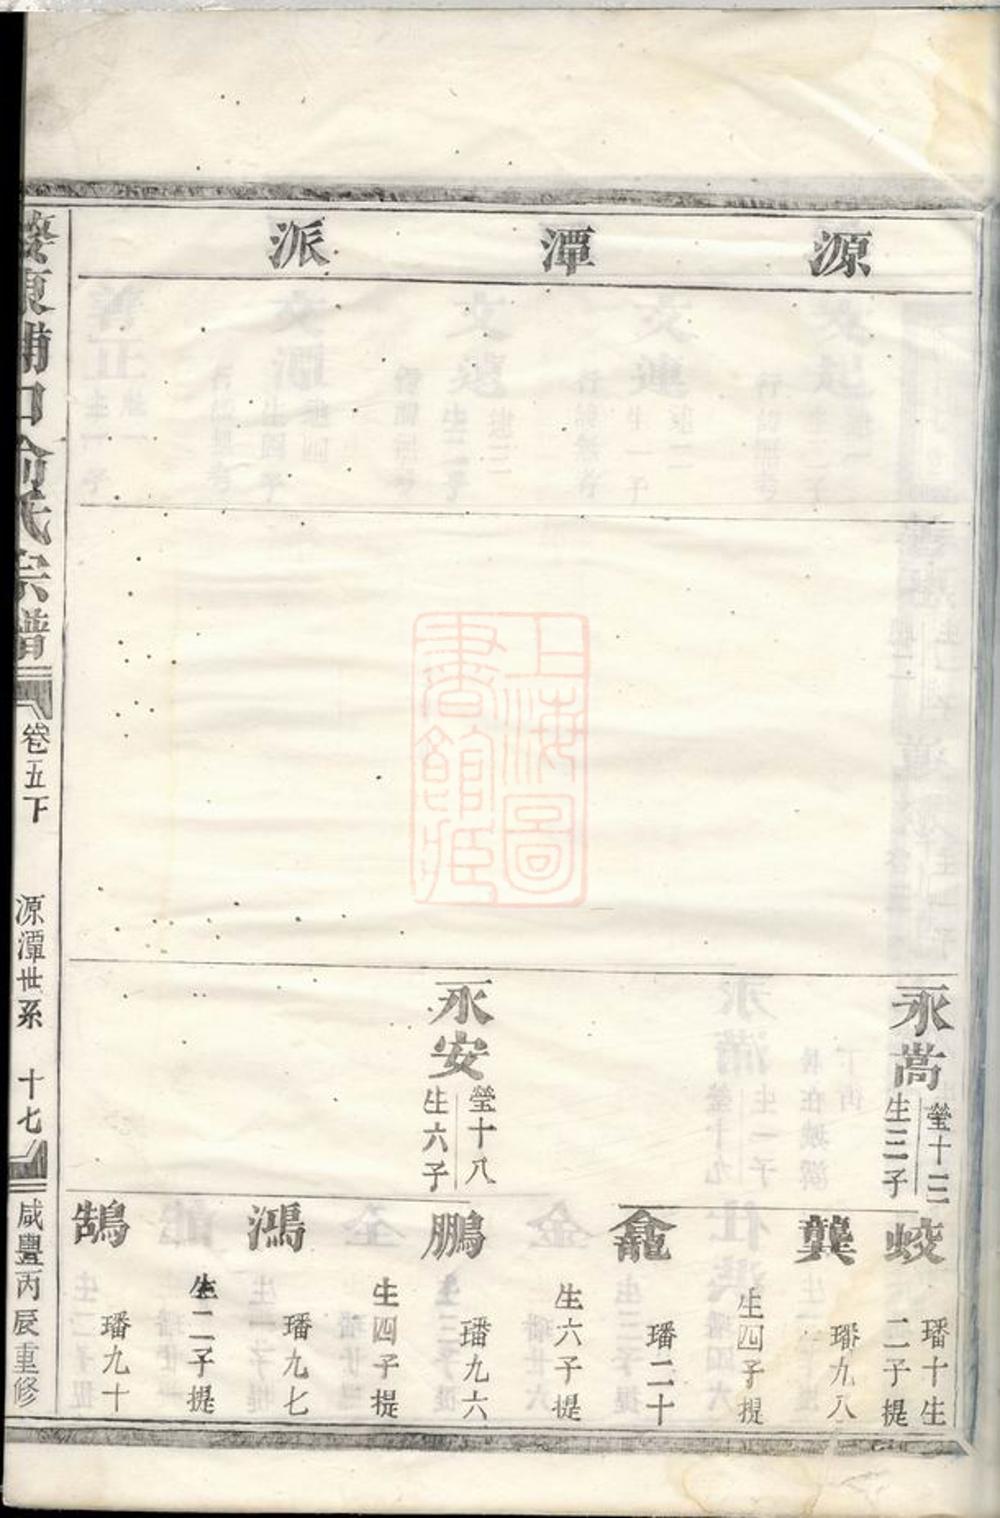 源潭派
永嵩
瑩十三
生三子
永安
瑩十八
生六子
蛟
璠十生
二子提
龔
璠九八
生四子提
龕
璠二十
鵬
生六子提
璠九六
鴻
生四子提
璠九七
鵠
生二子提
璠九十
東
口俞氏宗譜
卷五下
源潭世系
十七
咸豐丙辰重修
上海圖
書館藏